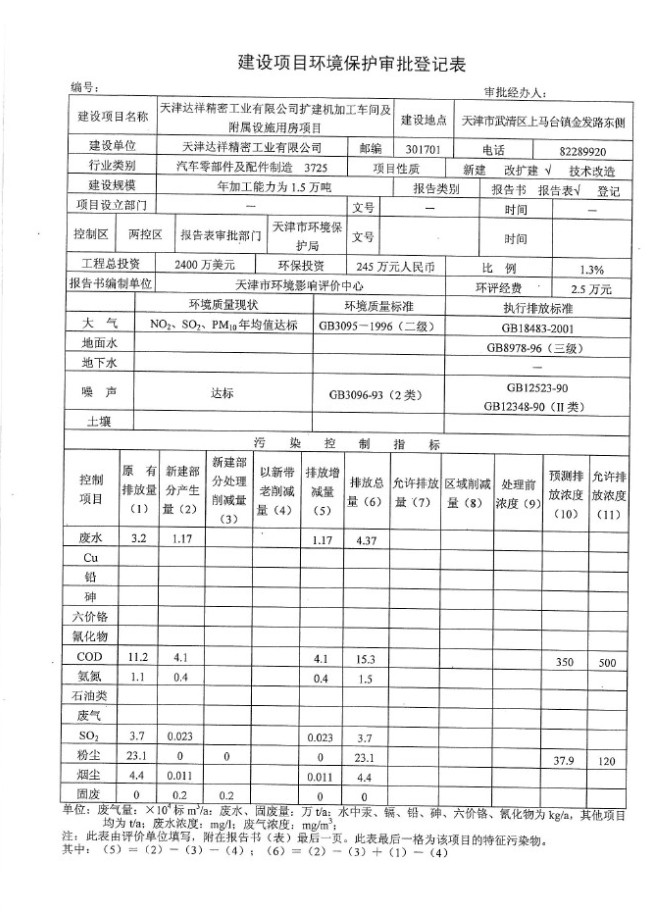 建设项目环境保护审批登记表
编号： 审批经办人：
建设项目名称 天津达祥精密工业有限公司扩建机加工车间及附属设施用房项目 建设地点 天津市武清区上马台镇金发路东侧
建设单位 天津达祥精密工业有限公司 邮编 301701 电话 82289920
行业类别 汽车零部件及配件制造 3725 项目性质 新建 改扩建 √ 技术改造
建设规模 年加工能力为 1.5 万吨 报告类别 报告书 报告表√ 登记
项目设立部门 — 文号 — 时间 —
控制区 两控区 报告表审批部门 天津市环境保护局 文号 时间
工程总投资 2400 万美元 环保投资 245 万元人民币 比 例 1.3%
报告书编制单位 天津市环境影响评价中心 环评经费 2.5 万元
环境质量现状 环境质量标准 执行排放标准
大 气 NO₂、SO₂、PM₁₀年均值达标 GB3095－1996（二级） GB18483-2001
地面水 GB8978-96（三级）
地下水 —
噪 声 达标 GB3096-93（2 类） GB12523-90
GB12348-90（II 类）
土壤
污 染 控 制 指 标
控制项目 原 有排放量（1） 新建部分产生量（2） 新建部分处理削减量（3） 以新带老削减量（4） 排放增减量（5） 排放总量（6） 允许排放量（7） 区域削减量（8） 处理前浓度（9） 预测排放浓度（10） 允许排放浓度（11）
废水 3.2 1.17 1.17 4.37
Cu
铅
砷
六价铬
氰化物
COD 11.2 4.1 4.1 15.3 350 500
氨氮 1.1 0.4 0.4 1.5
石油类
废气
SO₂ 3.7 0.023 0.023 3.7
粉尘 23.1 0 0 0 23.1 37.9 120
烟尘 4.4 0.011 0.011 4.4
固废 0 0.2 0.2 0 0
单位：废气量：×10⁴标 m³/a；废水、固废量：万 t/a；水中汞、镉、铅、砷、六价铬、氰化物为 kg/a，其他项目
均为 t/a；废水浓度：mg/l；废气浓度：mg/m³；
注：此表由评价单位填写，附在报告书（表）最后一页。此表最后一格为该项目的特征污染物。
其中：（5）＝（2）－（3）－（4）；（6）＝（2）－（3）＋（1）－（4）